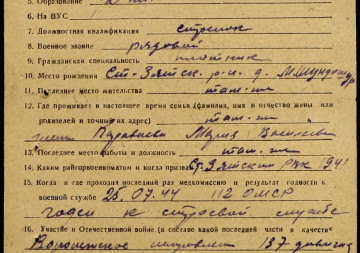 5. Образование
6. На ВУС
7. Должностная квалификация стрелок
8. Военное звание рядовой
9. Гражданская специальность плотник
10. Место рождения Ст-Зятск. р-н д.
11. Последнее место жительства там-же
12. Где проживает в настоящее время семья (фамилия, имя и отчество жены или
родителей и точный адрес) там-же
жена Мария
13. Последнее место работы и должность там-же
14. Каким райгорвоенкоматом и когда призван Ст. Зятским РВК 1941
15. Когда и где проходил последний раз медкомиссию и результат годности к
военной службе 25.07.44 112 ОМСР
годен к строевой службе
16. Участие в Отечественной войне (в составе какой последней части в качестве
137 дивизия